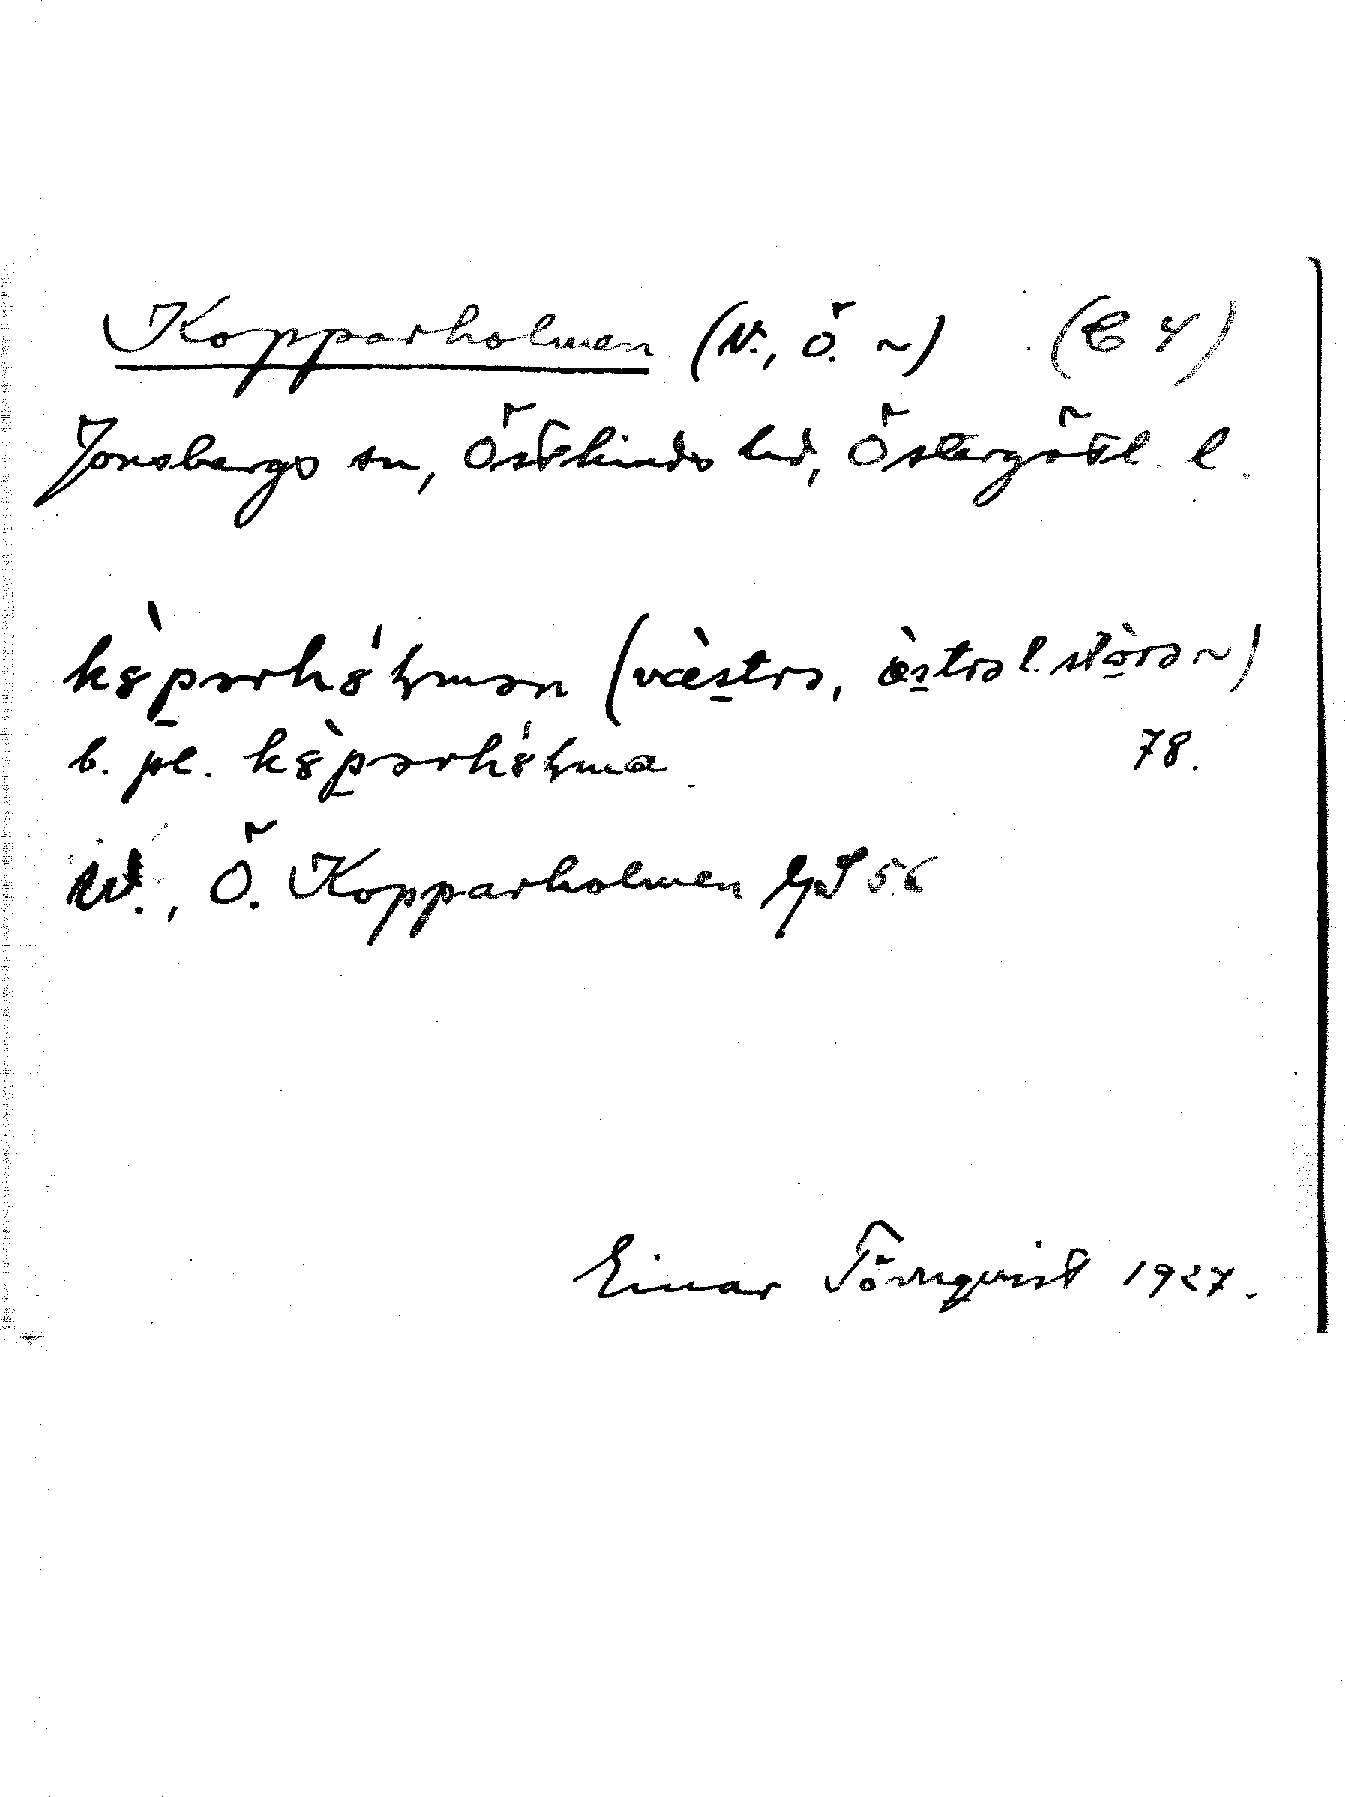 Kopparholmen (V., Ö. ~) (C 4)
Jonsbergs sn, Östkinds hd, Östergötl. l.
k8̀p̠ərh8́ɽmən (væ̀s̠trə, œ̀s̠trə l. stò̠rə ~)
b. pl. k8̀p̠ərh8́ɽma 78.
V., Ö. Kopparholmen 56
Einar Törnqvist 1927.